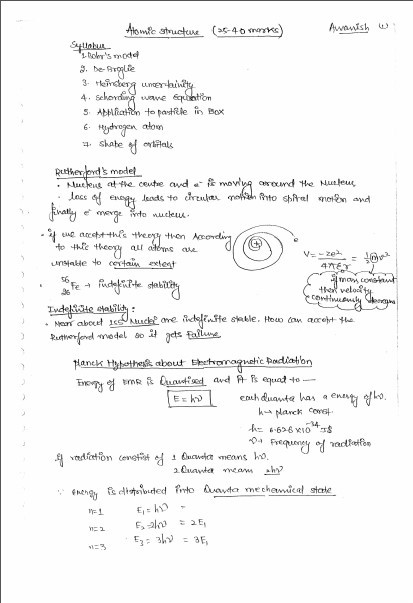 Atomic structure (25-40 marks)
Awanish
Syllabus
1. Bohr's model
2. De-Broglie
3. Heinsberg uncertainity
4. Schording wave Equation
5. Application to particle in Box
6. Hydrogen atom
7. Shape of orbitals
Rutherford's model
• Nucleus at the centre and e⁻ is moving around the Nucleus
• Loss of energy leads to circular motion into spiral motion and
finally e⁻ merge into nucleus.
• if we accept this theory then According
to this theory all atoms are
unstable to certain extent
e
V = -ze²/4πε₀r = ½mv²
if mass constant
then velocity
continuously
• ⁵⁶₂₆Fe → indefinite stability
Indefinite stability:
• Near about 155 Nuclei are indefinite stable. How can accept the
Rutherford model so it gets Failure.
Planck Hypothesis about Electromagnetic Radiation
Energy of EMR is Quantised and it is equal to —
E = hν
each quanta has a energy of hν.
h → planck const
h = 6.626×10⁻³⁴ JS
ν → Frequency of radiation
if radiation consist of 1 Quanta means hν.
2 Quanta means 2hν
∵ energy is distributed into Quanta mechanical state
n=1 E₁ = hν =
n=2 E₂ = 2hν = 2E₁
n=3 E₃ = 3hν = 3E₁